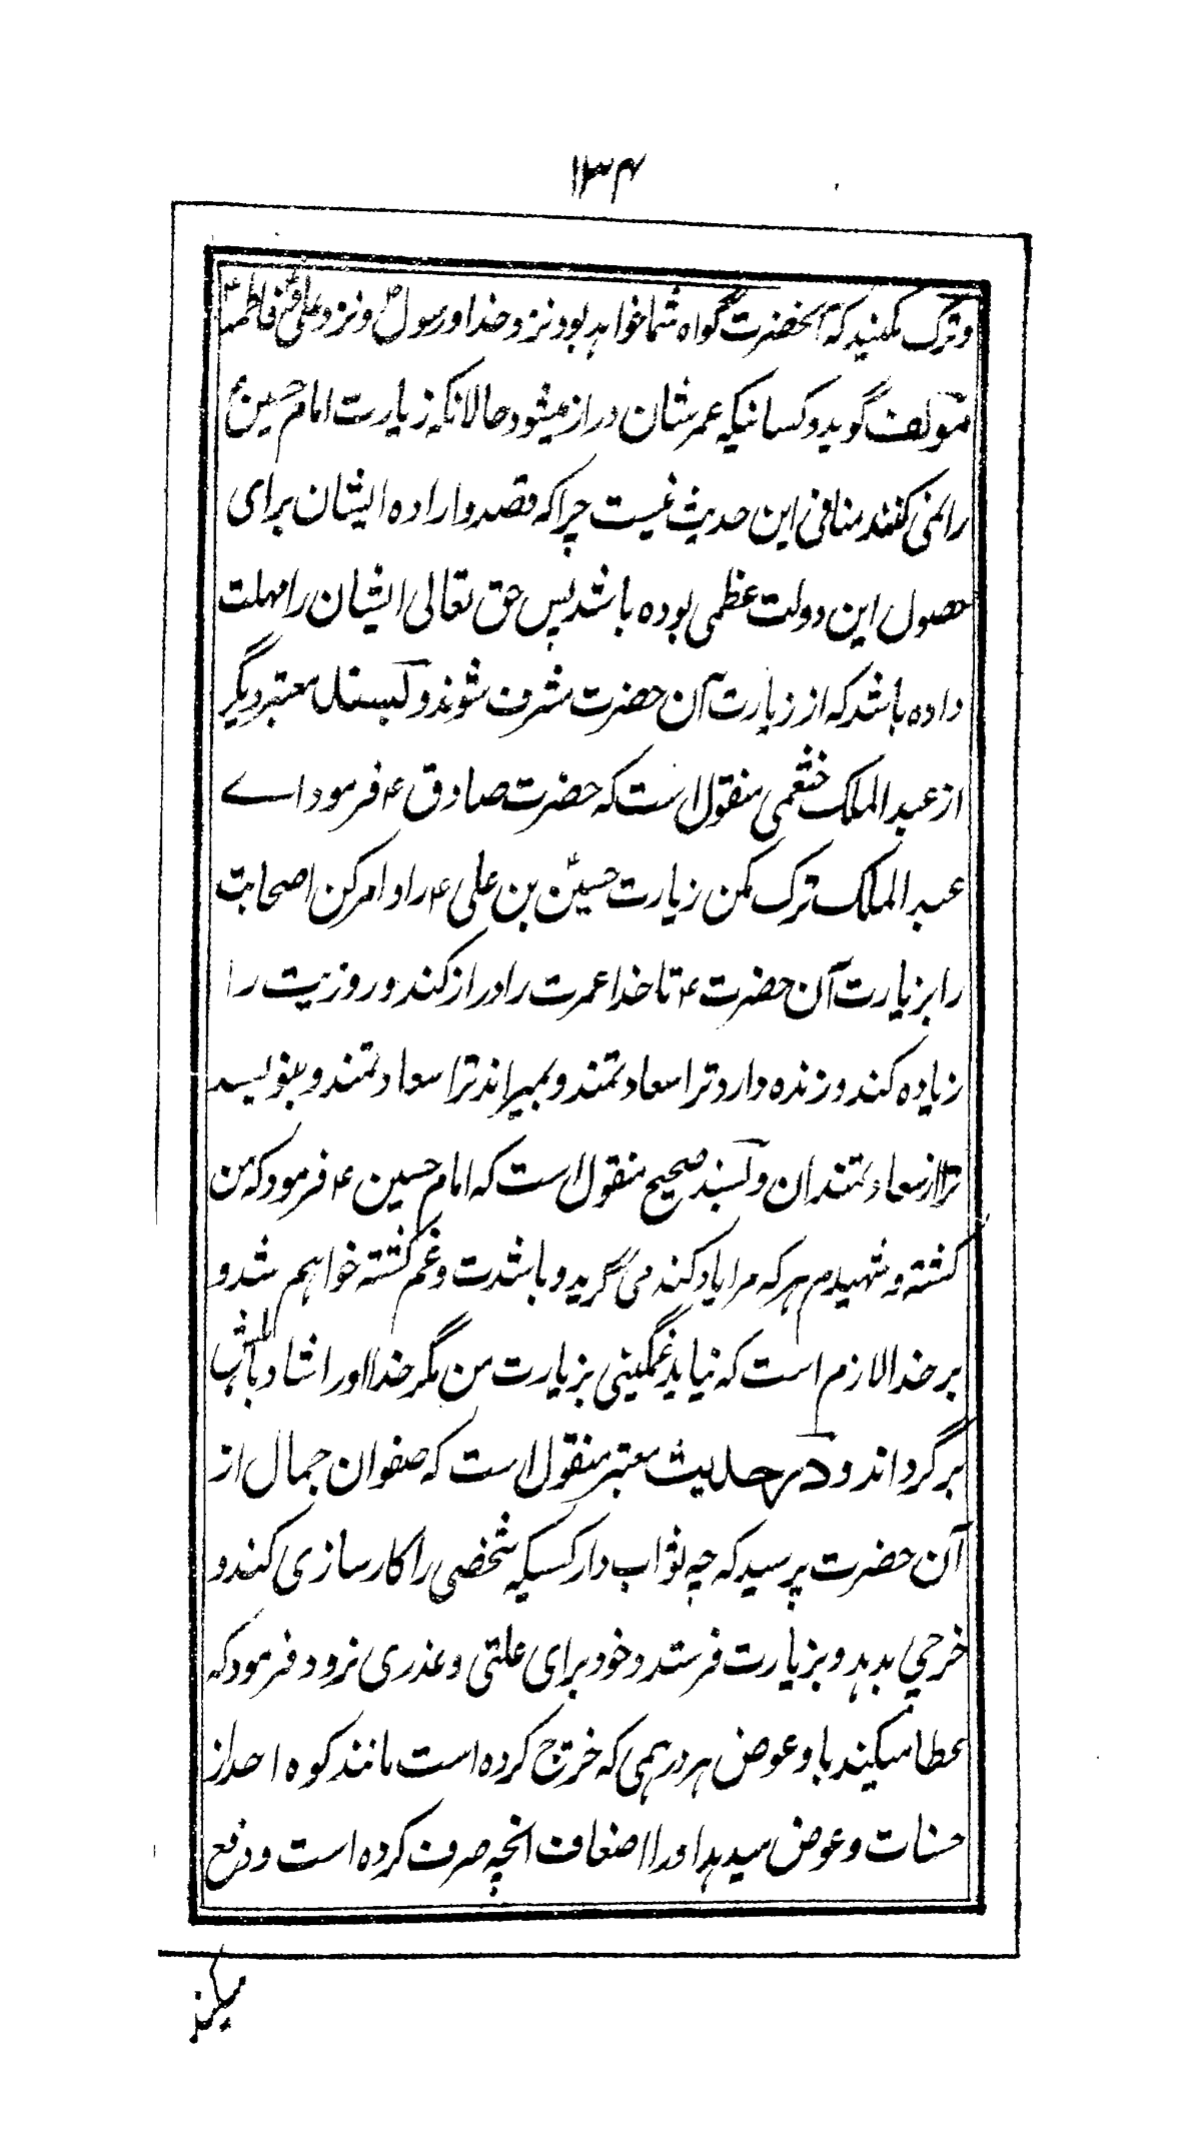 ۱۳۴
و ترک مکنید که آنحضرتؑ گواه شما خواهد بود نزد خدا و رسولؐ و نزد علیؑ و فاطمهؑ
مؤلف گوید و کسانیکه عمر شان دراز میشود حالانکه زیارت امام حسینؑ
را نمی کنند منافی این حدیث نیست چرا که قصد و اراده ایشان برای
حصول این دولت عظمی بوده باشد پس حق تعالی ایشان را مهلت
داده باشد که از زیارت آن حضرت مشرف شوند و بسند معتبر دیگر
از عبد الملک خثعمی منقول است که حضرت صادق ۴ فرمود اے
عبد الملک ترک مکن زیارت حسینؑ بن علی ۴ را و امر کن اصحابت
را بزیارت آن حضرت ۴ تا خدا عمرت را دراز کند و روزیت را
زیاده کند و زنده دارد ترا سعادتمند و بمیراند ترا سعادتمند و بنویسد
ترا از سعادتمندان و بسند صحیح منقول است که امام حسین ۴ فرمود که من
کشته و شهیدم هر که مرا یاد کند می گرید و با شدت و غم کشته خواهم شد و
بر خدا لازم است که نیاید غمگینی بزیارت من مگر خدا اورا شاد باهلش
برگرداند و در حدیث معتبر منقول است که صفوان جمال از
آن حضرت پرسید که چه ثواب دارد کسیکه شخصی را کارسازی کند و
خرجی بدهد و بزیارت فرستد و خود برای علتی و عذری نرود فرمود که
عطا میکند باو عوض هر درهمی که خرج کرده است مانند کوه احد از
حسنات و عوض میدهد اورا اضعاف آنچه صرف کرده است و دفع
میکند